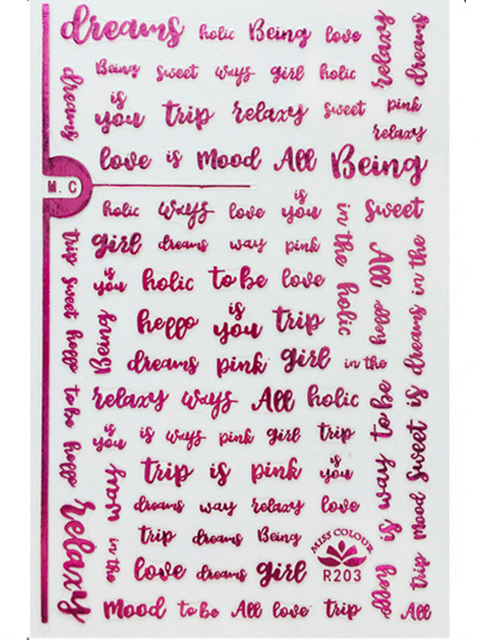 dreams holic Being love
Being sweet ways girl holic
is
you trip relaxy sweet pink
relaxy
love is Mood All Being
M.C
holic ways love is you sweet
girl dreams way pink
is
you holic to be love
hello is you trip
dreams pink girl in the
relaxy ways All holic
is
you is ways pink girl trip
trip is pink is you
dreams way relaxy love
trip dreams Being
love dreams girl
Mood to be All love trip All
MISS COLOUR
R203
dreams
relaxy
dreams
trip sweet hello to be hello
relaxy
Being
in the
in the holic
All
to be
trip Mood Sweet is dreams in the